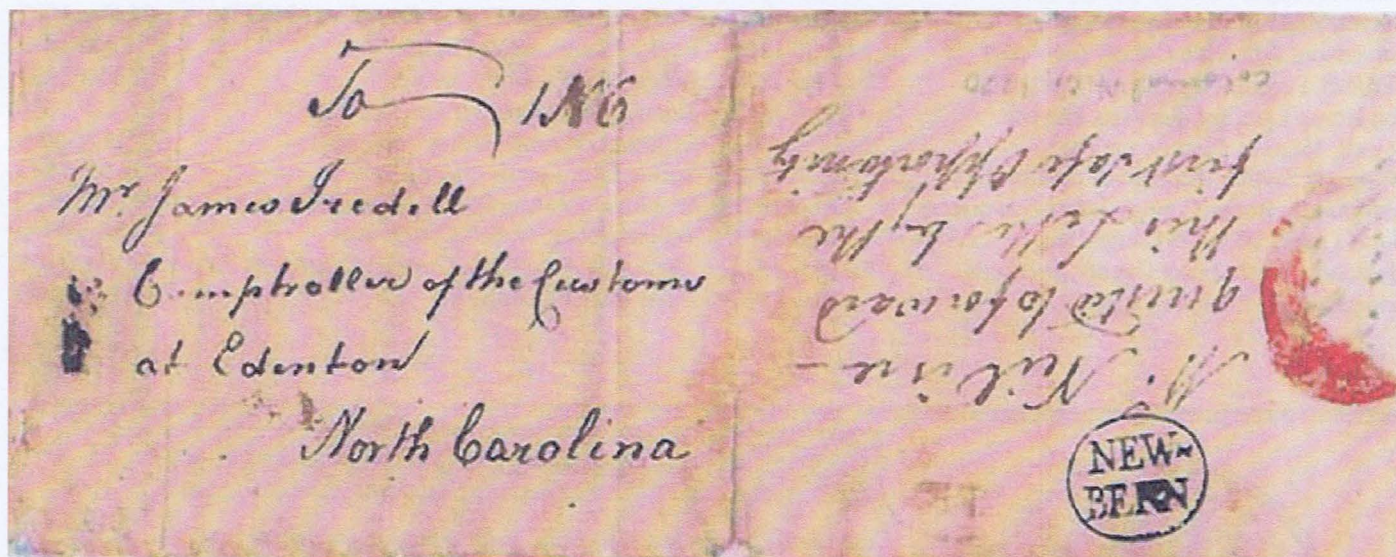 To
Mr. James Iredell
Comptroller of the Customs
at Edenton
North Carolina
Mr. Neil is re-
quested to forward
this Letter by the
first safe Opportunity
NEW-
BERN